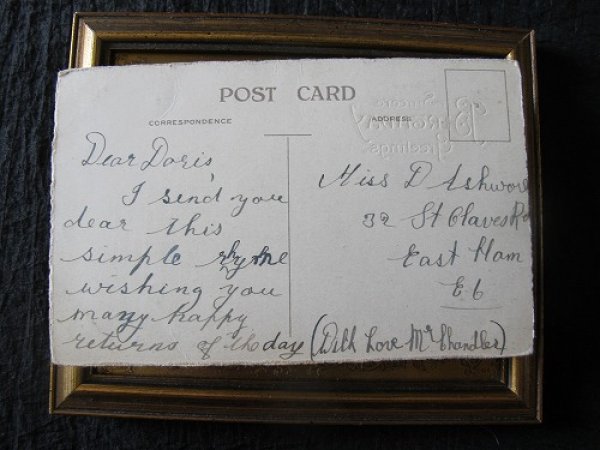 POST CARD
CORRESPONDENCE
ADDRESS
Dear Doris
I send you
dear this
simple rhyme
wishing you
many happy
returns of the day (With Love Mr Chandler)
Miss D Ashwore
32 St Olaves Rd
East Ham
E 6
Sincere
BIRTHDAY
Greetings